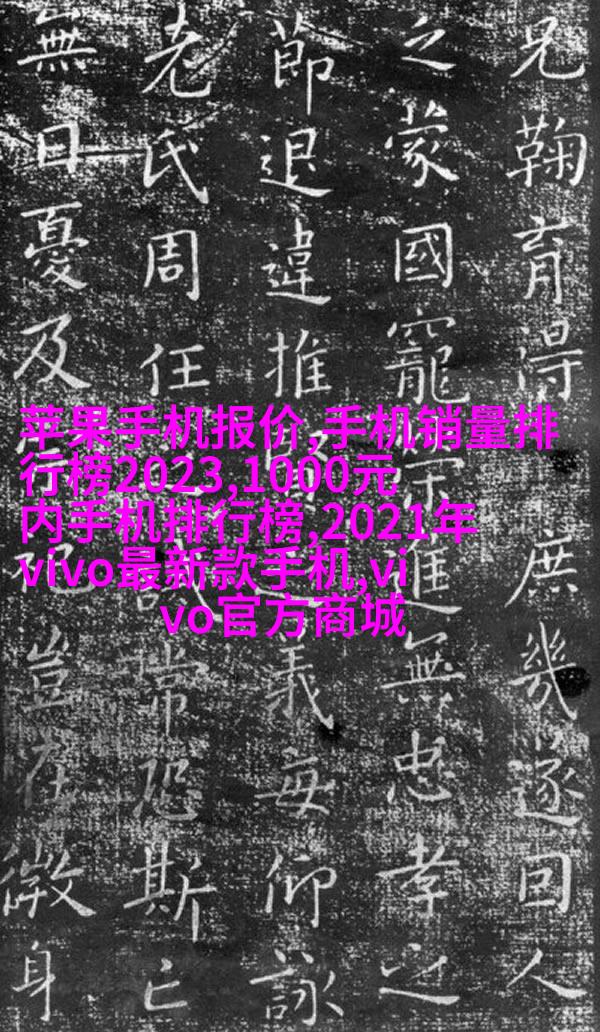 兄鞠育得庶幾遂回人
之蒙國寵進無忠孝之
節退違推賢義每仰詠
老氏周任誡常恐斯亡
無日憂及豈在微身
苹果手机报价,手机销量排
行榜2023,1000元
内手机排行榜,2021年
vivo最新款手机,vi
vo官方商城